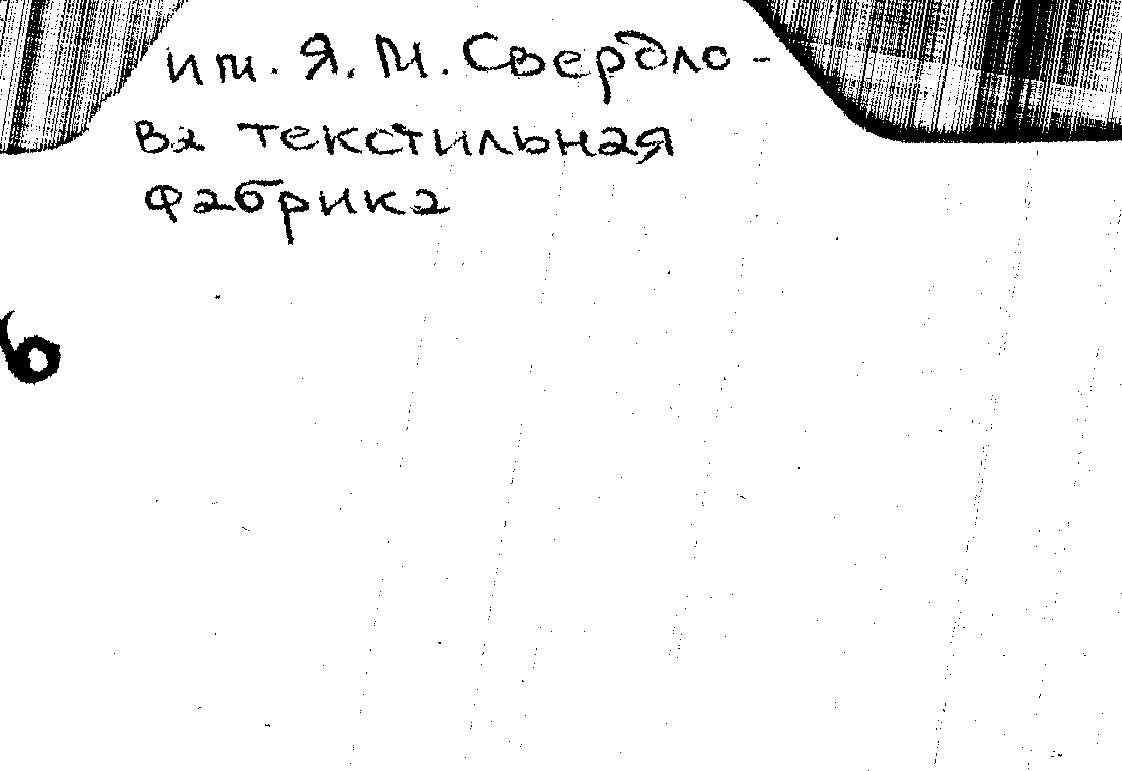 им. Я. М. Свердло-
ва текстильная
фабрика
6